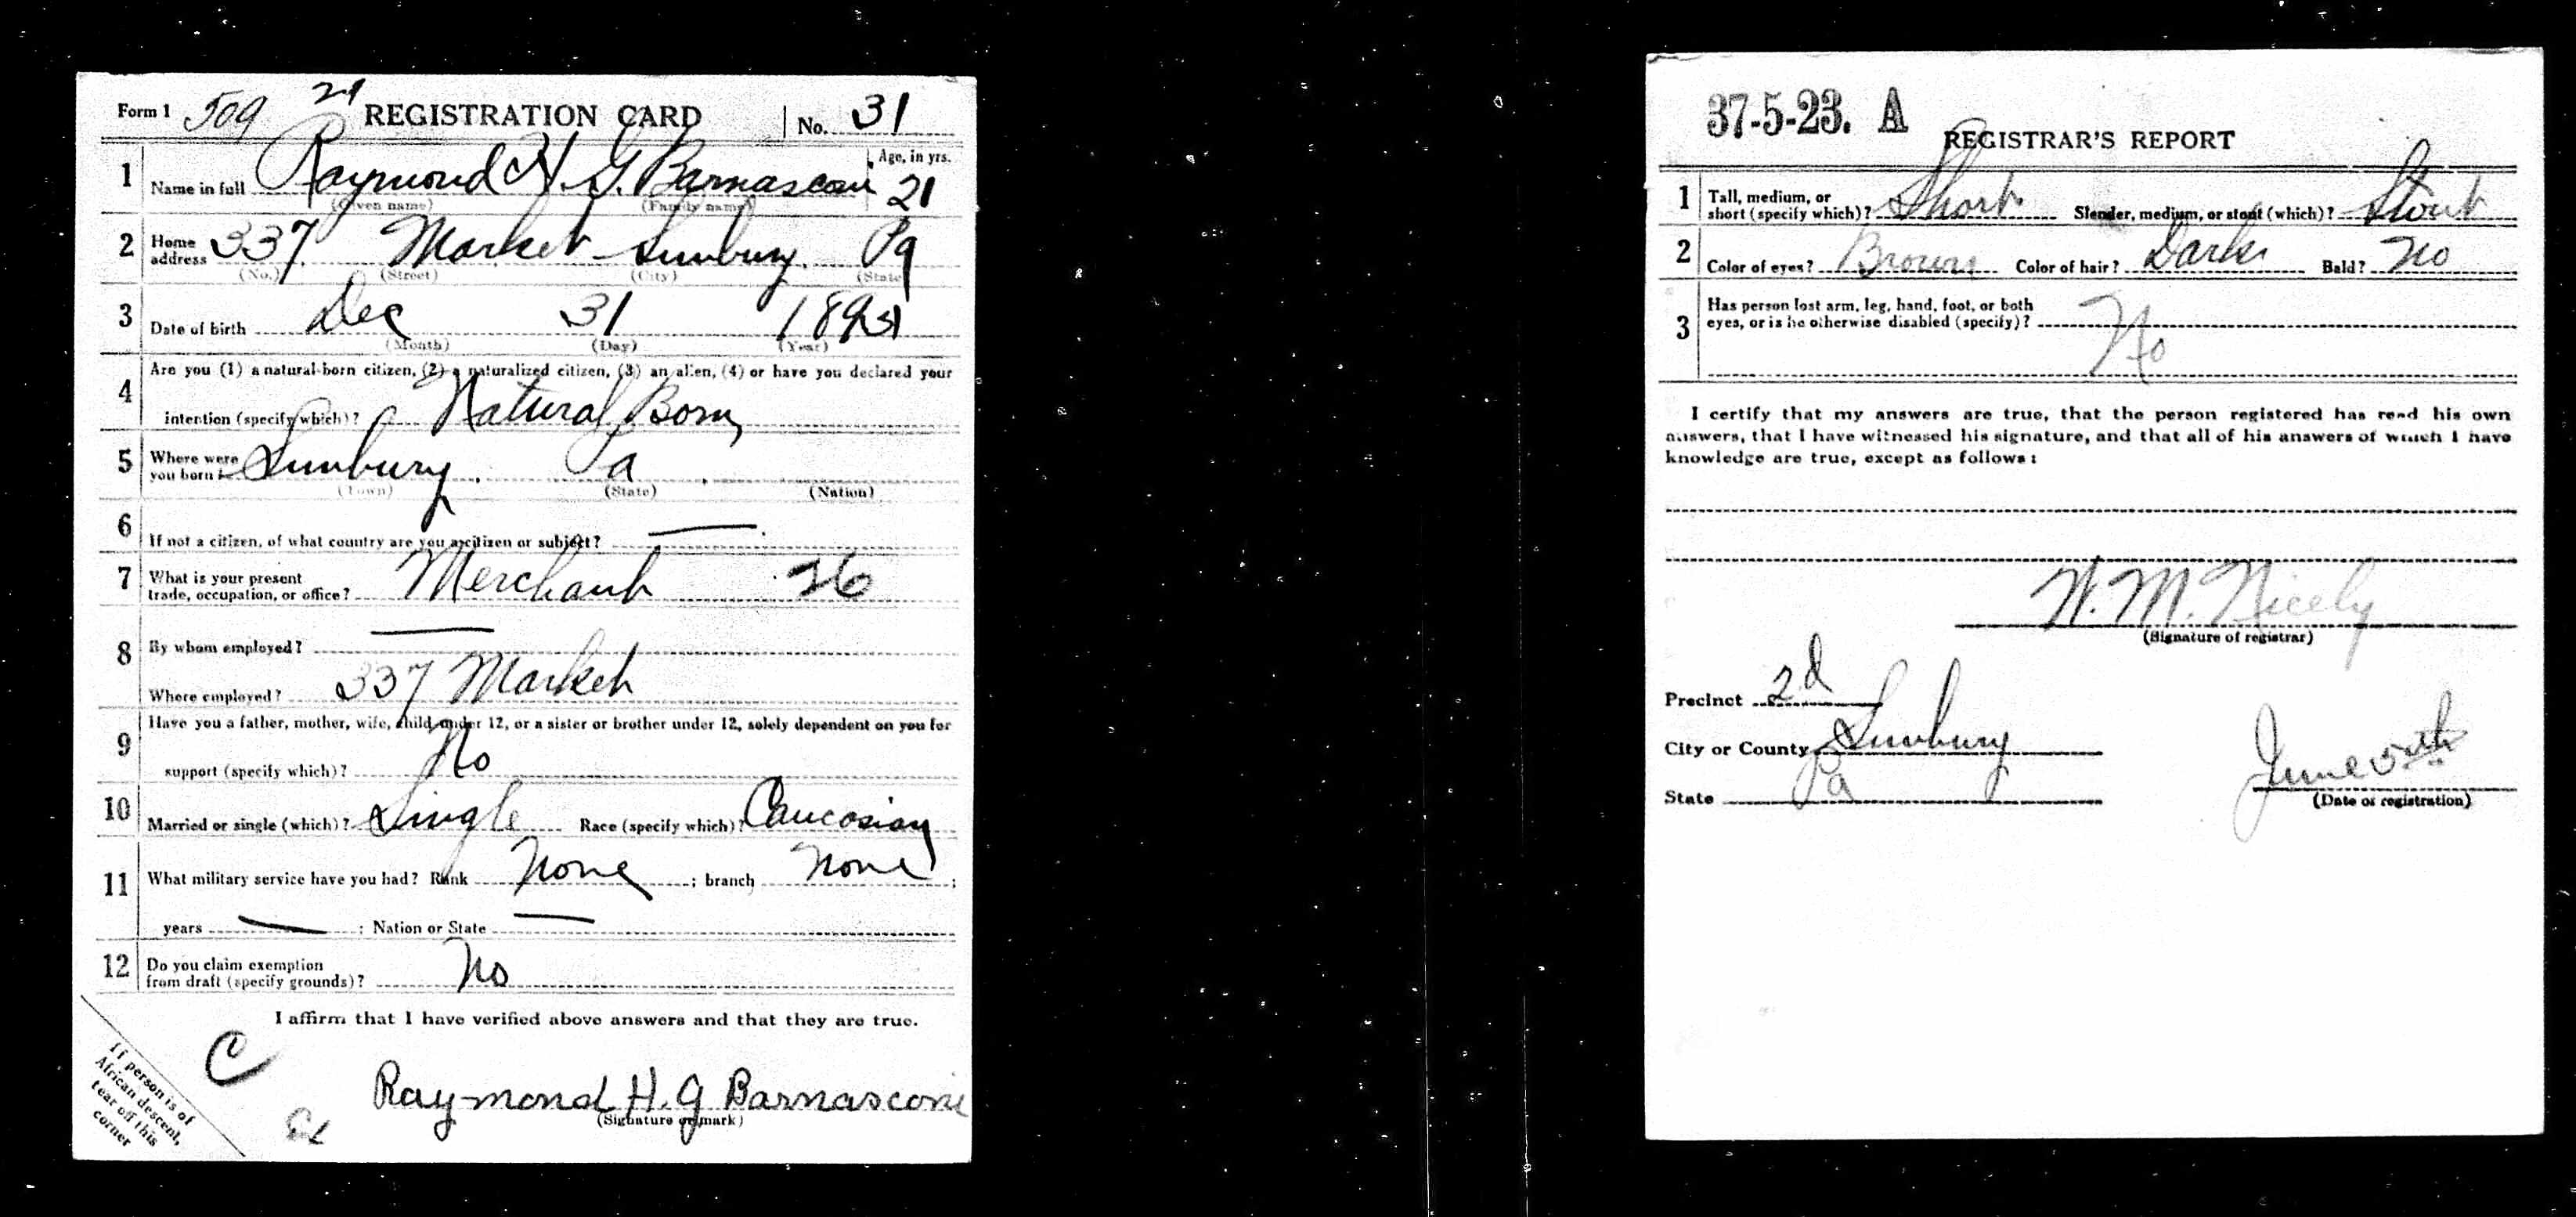 Form 1 509 21 REGISTRATION CARD No. 31
1 Name in full Raymond H. G. Barnasconi Age, in yrs. 21
(Given name) (Family name)
2 Home address 337 Market Sunbury Pa
(No.) (Street) (City) (State)
3 Date of birth Dec 31 189
(Month) (Day) (Year)
4 Are you (1) a natural-born citizen, (2) a naturalized citizen, (3) an alien, (4) or have you declared your
intention (specify which)? Natural Born,
5 Where were you born? Sunbury, Pa
(Town) (State) (Nation)
6 If not a citizen, of what country are you a citizen or subject? —
7 What is your present trade, occupation, or office? Merchant 26
8 By whom employed? —
Where employed? 337 Market
9 Have you a father, mother, wife, child under 12, or a sister or brother under 12, solely dependent on you for
support (specify which)? No
10 Married or single (which)? Single Race (specify which)? Caucasian
11 What military service have you had? Rank None ; branch None ;
years — ; Nation or State —
12 Do you claim exemption from draft (specify grounds)? No
I affirm that I have verified above answers and that they are true.
C
Raymond H. G Barnasconi
(Signature or mark)
If person is of
African descent,
tear off this
corner
37-5-23. A
REGISTRAR'S REPORT
1 Tall, medium, or short (specify which)? Short Slender, medium, or stout (which)? Stout
2 Color of eyes? Brown Color of hair? Dark Bald? No
3 Has person lost arm, leg, hand, foot, or both
eyes, or is he otherwise disabled (specify)? No
I certify that my answers are true, that the person registered has read his own
answers, that I have witnessed his signature, and that all of his answers of which I have
knowledge are true, except as follows:
W. M. Nicely
(Signature of registrar)
Precinct 2d
City or County Sunbury
State Pa
June 5th
(Date of registration)